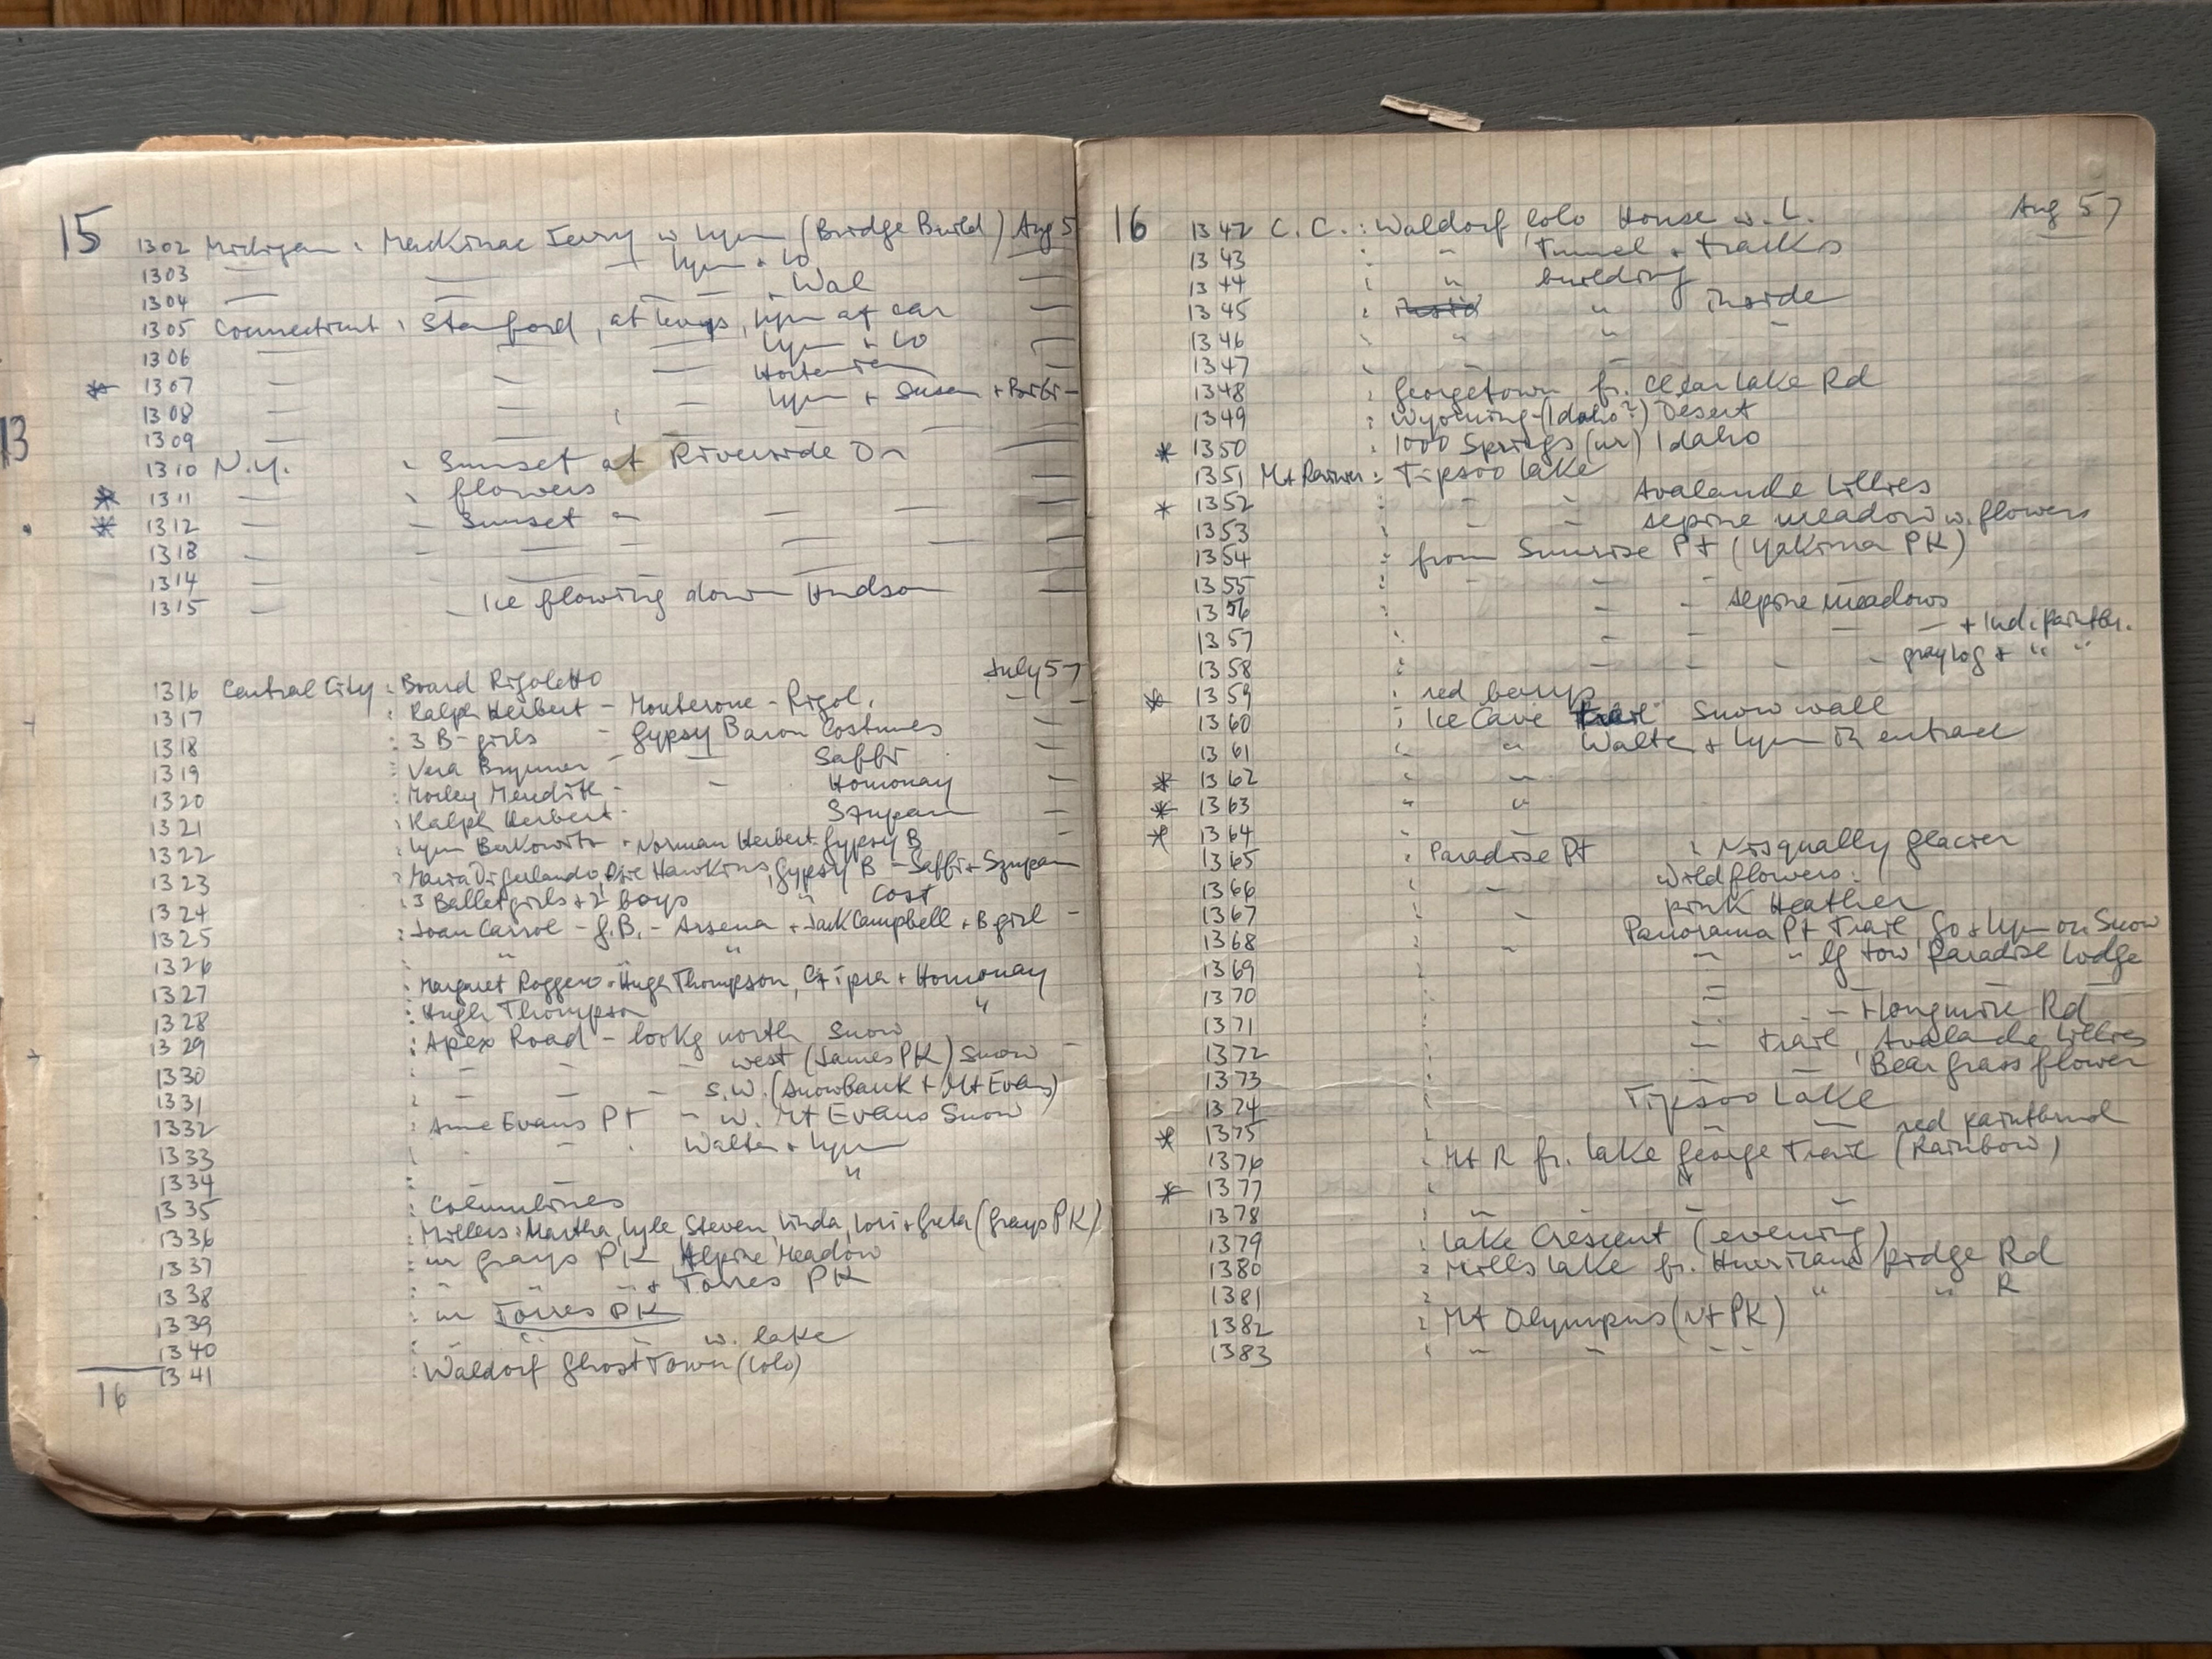 15 1302 Michigan : Mackinac Ferry w Lynn (Bridge Build) Aug 5
1303 — — — Lynn + Lo
1304 — — — + Wal —
1305 Connecticut : Stamford, at Levys, Lynn at car —
1306 — — — Lynn + Lo —
* 1307 — — — —
1308 — — — Lynn + Susan + Bibi -
13
1309 — — — —
1310 N.Y. : Sunset at Riverside Dr —
* 1311 — : flowers —
* 1312 — - Sunset " — — —
1318 — - — — — — —
1314 — — — — —
1315 — - Ice flowing down Hudson —
July 57
1316 Central City : Board Rigoletto - -
1317 : Ralph Herbert - Monterone - Rigol. —
1318 : 3 B-girls - Gypsy Baron Costumes
1319 : Vera Brynner - — Saffi —
1320 : Morley Meredith - - Homonay —
1321 : Ralph Herbert - Szupan —
1322 : Lynn Berkowitz + Norman Herbert Gypsy B -
1323 : Maria DiGerlando, Hawkins, Gypsy B - Saffi + Szupan
1324 : 3 Balletgirls + 2 boys " Cost
1325 : Joan Carrol - G.B. - Arsena + Jack Campbell + B girl -
1326 : " "
1327 : Margaret Roggero + Hugh Thompson, Czipra + Homonay
1328 : Hugh Thompson "
1329 : Apex Road - lookg north Snow
1330 : - - - west (James PK) Snow -
1331 : - - - S.W. (Snowbank + Mt Evans)
1332 : Anne Evans Pt - w. Mt Evans Snow
1333 : - - Walter + Lynn
1334 : "
1335 : Columbines
1336 : Millers : Martha, Lyle, Steven, Linda, Lori + Greta (Grays PK)
1337 : ur Grays PK Alpine Meadow
1338 : " " " + Torres PK
1339 : ur Torres PK
1340 : " " - w. lake
1341 : Waldorf Ghost Town (Colo)
16
16 1342 C.C. : Waldorf Colo House w. L. Aug 57
1343 : " Tunnel + tracks
1344 : " building
1345 : " inside
1346 : " " -
1347 : - -
1348 : Georgetown fr. Clear Lake Rd
1349 : Wyoming - (Idaho?) Desert
* 1350 : 1000 Springs (ur) Idaho
1351 Mt Rainier : Tipsoo Lake
* 1352 : - - Avalanche Lillies
1353 : - - Alpine meadow w. flowers
1354 : from Sunrise Pt (Yakima PK)
1355 : - - - -
1356 : - - Alpine meadows
1357 : - - — — + Ind. paintbr.
1358 : - - - - gray log + " "
* 1359 : red berrys
1360 : Ice Cave Trail Snow wall
1361 : " " Walter + Lynn in entrace
* 1362 : " "
* 1363 : " "
* 1364
1365 : Paradise Pt : Nisqually Glacier
1366 : - Wildflowers :
1367 : - pink Heather
1368 : - Panorama Pt Trail Lo + Lynn on Snow
1369 : - - tow Paradise Lodge
1370 : =
1371 : - - Longmire Rd
1372 : - Trail, Avalanche Lillies
1373 : - - Beargrass flower
1374 : Tipsoo Lake
* 1375 : - - red paintbrush
1376 : Mt R fr. Lake George Trail (Rainbow)
* 1377 : " -
1378 : - - -
1379 : Lake Crescent (evening)
1380 : Mills Lake fr. Hurricane ridge Rd
1381 : " " R
1382 : Mt Olympus (Nt PK)
1383 : - - - -